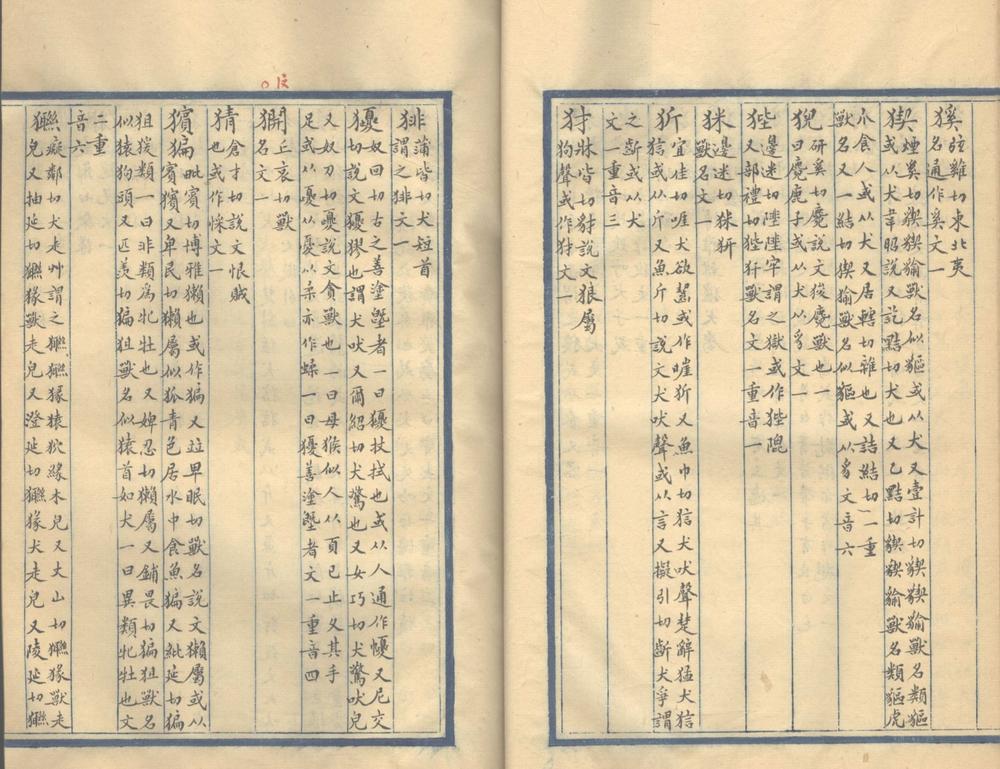 弦雞切東北夷
名通作奚文一
猰 煙奚切猰猰㺄獸名似貙或从犬又壹計切貏猰㺄獸名類貙
或从犬韋昭說又訖黠切犬也又乙黠切猰貐獸名類貙虎
爪食人或从犬又居轄切雜也又詰結切一重
獸名又一結切猰㺄獸名似貙或从豸文一音六
猊 研奚切麑說文狻麑獸也一
曰麑鹿子或从犬从豸文一
狴 邊迷切陛陛牢謂之獄或作狴
又部禮切狴犴獸名文一重音一
邊迷切
獸名文一
狋 宜佳切啀犬欲齧或作𪘏狋又魚巾切狺犬吠聲楚辭猛犬狺
狺或从斤又魚斤切說文犬吠聲或从言又擬引切齗犬爭謂
之齗或从犬
文一重音三
犲 牀皆切豺說文狼屬
狗聲或作犲文一
猅 蒲皆切犬短首
謂之猅文一
獿 奴回切古之善塗塈者一曰獿扙拭也或从人通作㠢又尼交
切說文獿㺒也謂犬吠又爾紹切犬驚也又女巧切犬驚吠皃
又奴刀切夒說文貪獸也一曰母猴似人从頁已止夊其手
足或从憂从處以柔亦作蝚一曰獿善塗塈者文一重音四
丘哀切獸
名文一
猜 倉才切說文恨賊
也或作㥒文一
獱猵 毗賓切博雅獺也或作猵又竝早眠切獸名說文獺屬或从
賓獱又卑民切獺屬似狐青色居水中食魚猵又紕延切猵
狙猨類一曰非類爲牝牡也又婢忍切獺屬又鋪畏切猵狙獸名
似猿狗頭又匹羨切猵狙獸名似猿首如犬一曰異類牝牡也文
二重
音六
癡鄰切犬走艸謂之㺦㺦猭猿狖緣木皃又丈山切㺦猭獸走
皃又抽延切㺦猭獸走皃又澄延切㺦猭犬走皃又陵延切㺦